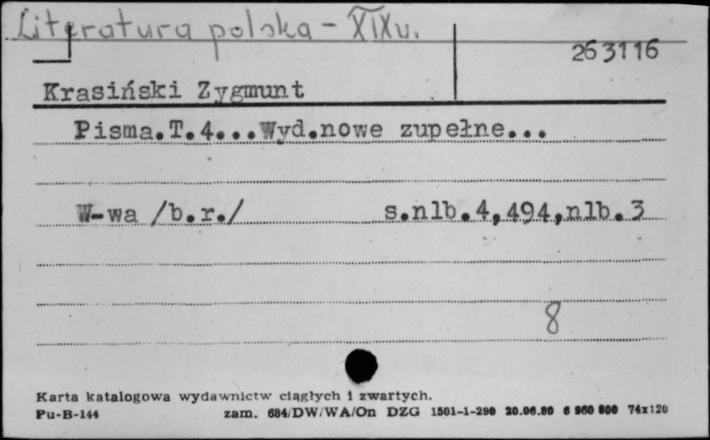 Literatura polska - XIX w.
263116
Krasiński Zygmunt
Pisma.T.4...Wyd.nowe zupełne...
W-wa /b.r./ s.nlb.4,494,nlb.3
8
Karta katalogowa wydawnictw ciągłych i zwartych.
Pu-B-144 zam. 684/DW/WA/On DZG 1501-1-290 20.06.80 6 960 800 74x120